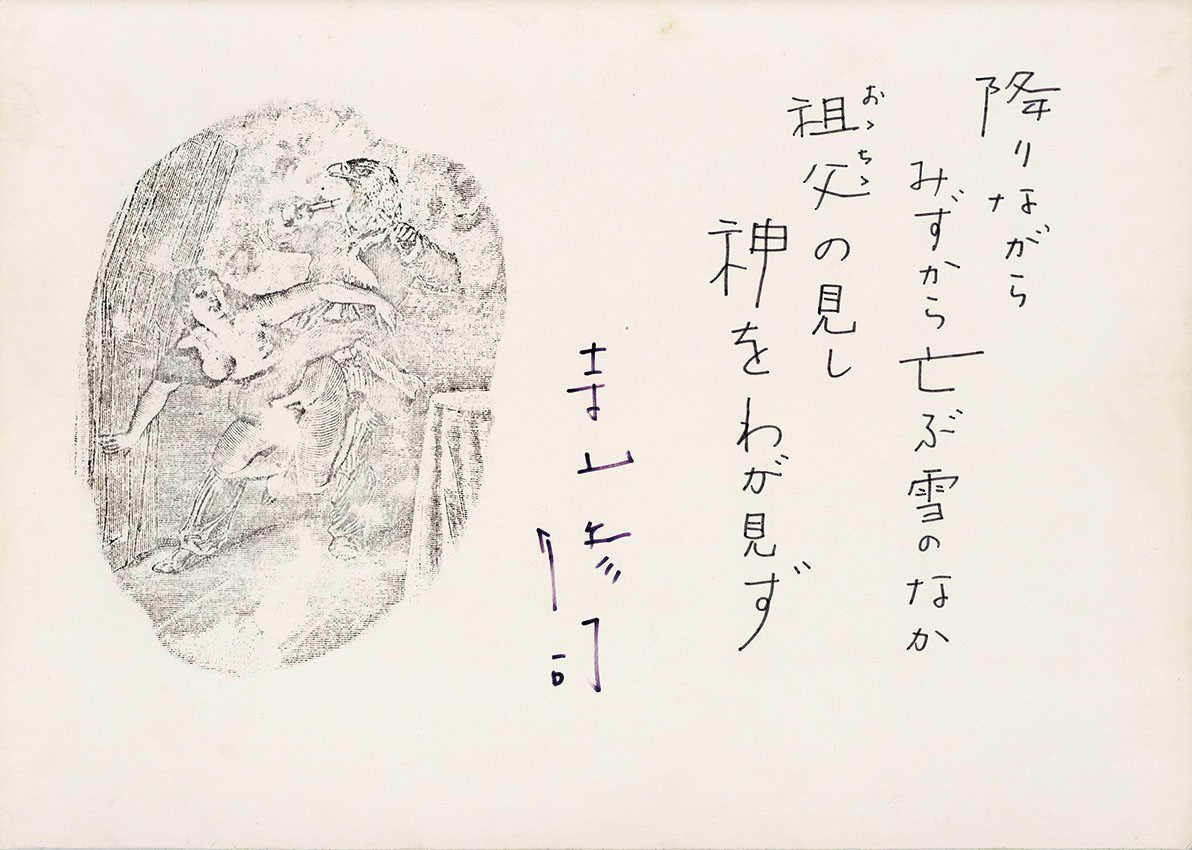 降りながら
みずから亡ぶ雪のなか
おゝちゝ
祖父の見し
神をわが見ず
寺山修司